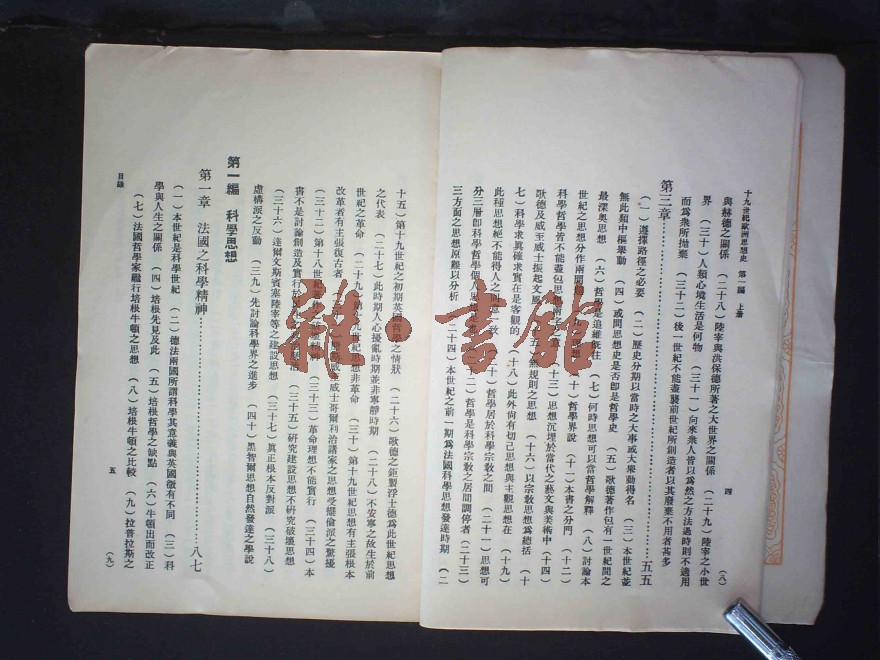 十九世紀歐洲思想史 第一編 上册
四 (八)
與赫德之關係 (二十八)陸宰與洪保德所著之大世界之關係 (二十九)陸宰之小世
界 (三十)人類心境生活是何物 (三十一)向來衆人皆以爲然之方法過時則不適用
而爲衆所拋棄 (三十二)後一世紀不能盡襲前世紀所創造者以其廢棄不用者甚多
第三章……五五
(一)選擇路徑之必要 (二)歷史分期以當時之大事或大衆動得名 (三)本世紀並
無此類中樞舉動 (四)或問思想史是否卽是哲學史 (五)歌德著作包有一世紀間之
最深奧思想 (六)哲學是追維旣往 (七)何時思想可以當哲學解釋 (八)討論本
世紀之思想分作兩開
思想 (十)哲學界說 (十一)本書之分門 (十二)
科學哲學皆不能盡包思想
(十三)思想沉埋於當代之藝文與美術中 (十四)
歌德及威至威士振起文風
無規則之思想 (十六)以宗敎思想爲總括 (十
七)科學求眞確求實在是客觀的 (十八)此外尙有切己思想與主觀思想在 (十九)
此種思想絕不能得人之同意一致
哲學居於科學宗敎之間 (二十一)思想可
分三層卽科學哲學個人思想
哲學是科學宗敎之居間調停者 (二十三)
三方面之思想原難以分析 (二十四)本世紀之前一期爲法國科學思想發達時期 (二
十五)第十九世紀之初期英國哲學之情狀 (二十六)歌德之鉅製浮士德爲此世紀思想
之代表 (二十七)此時期人心擾亂時期並非寧靜時期 (二十八)不安寧之故生於前
世紀之革命 (二十九)第十九世紀思想非革命 (三十)第十九世紀思想有主張根本
改革者有主張復古者
威至威士哥爾利治諸家之思想受擺倫派之驚擾
(三十二)第十八世紀
(三十三)革命理想不能實行 (三十四)本
書不是討論創造及實行於
(三十五)硏究建設思想不硏究破壞思想
(三十六)達爾文斯賓塞陸宰等之建設思想 (三十七)眞正根本反對派 (三十八)
虛構派之反動 (三九)先討論科學界之進步 (四十)黑智爾思想自然發達之學說
第一編 科學思想
第一章 法國之科學精神……八七
(一)本世紀是科學世紀 (二)德法兩國所謂科學其意義與英國微有不同 (三)科
學與人生之關係 (四)培根先見及此 (五)培根哲學之缺點 (六)牛頓出而改正
(七)法國哲學家繼行培根牛頓之思想 (八)培根牛頓之比較 (九)拉普拉斯之
目錄
五 (九)
雜·書館